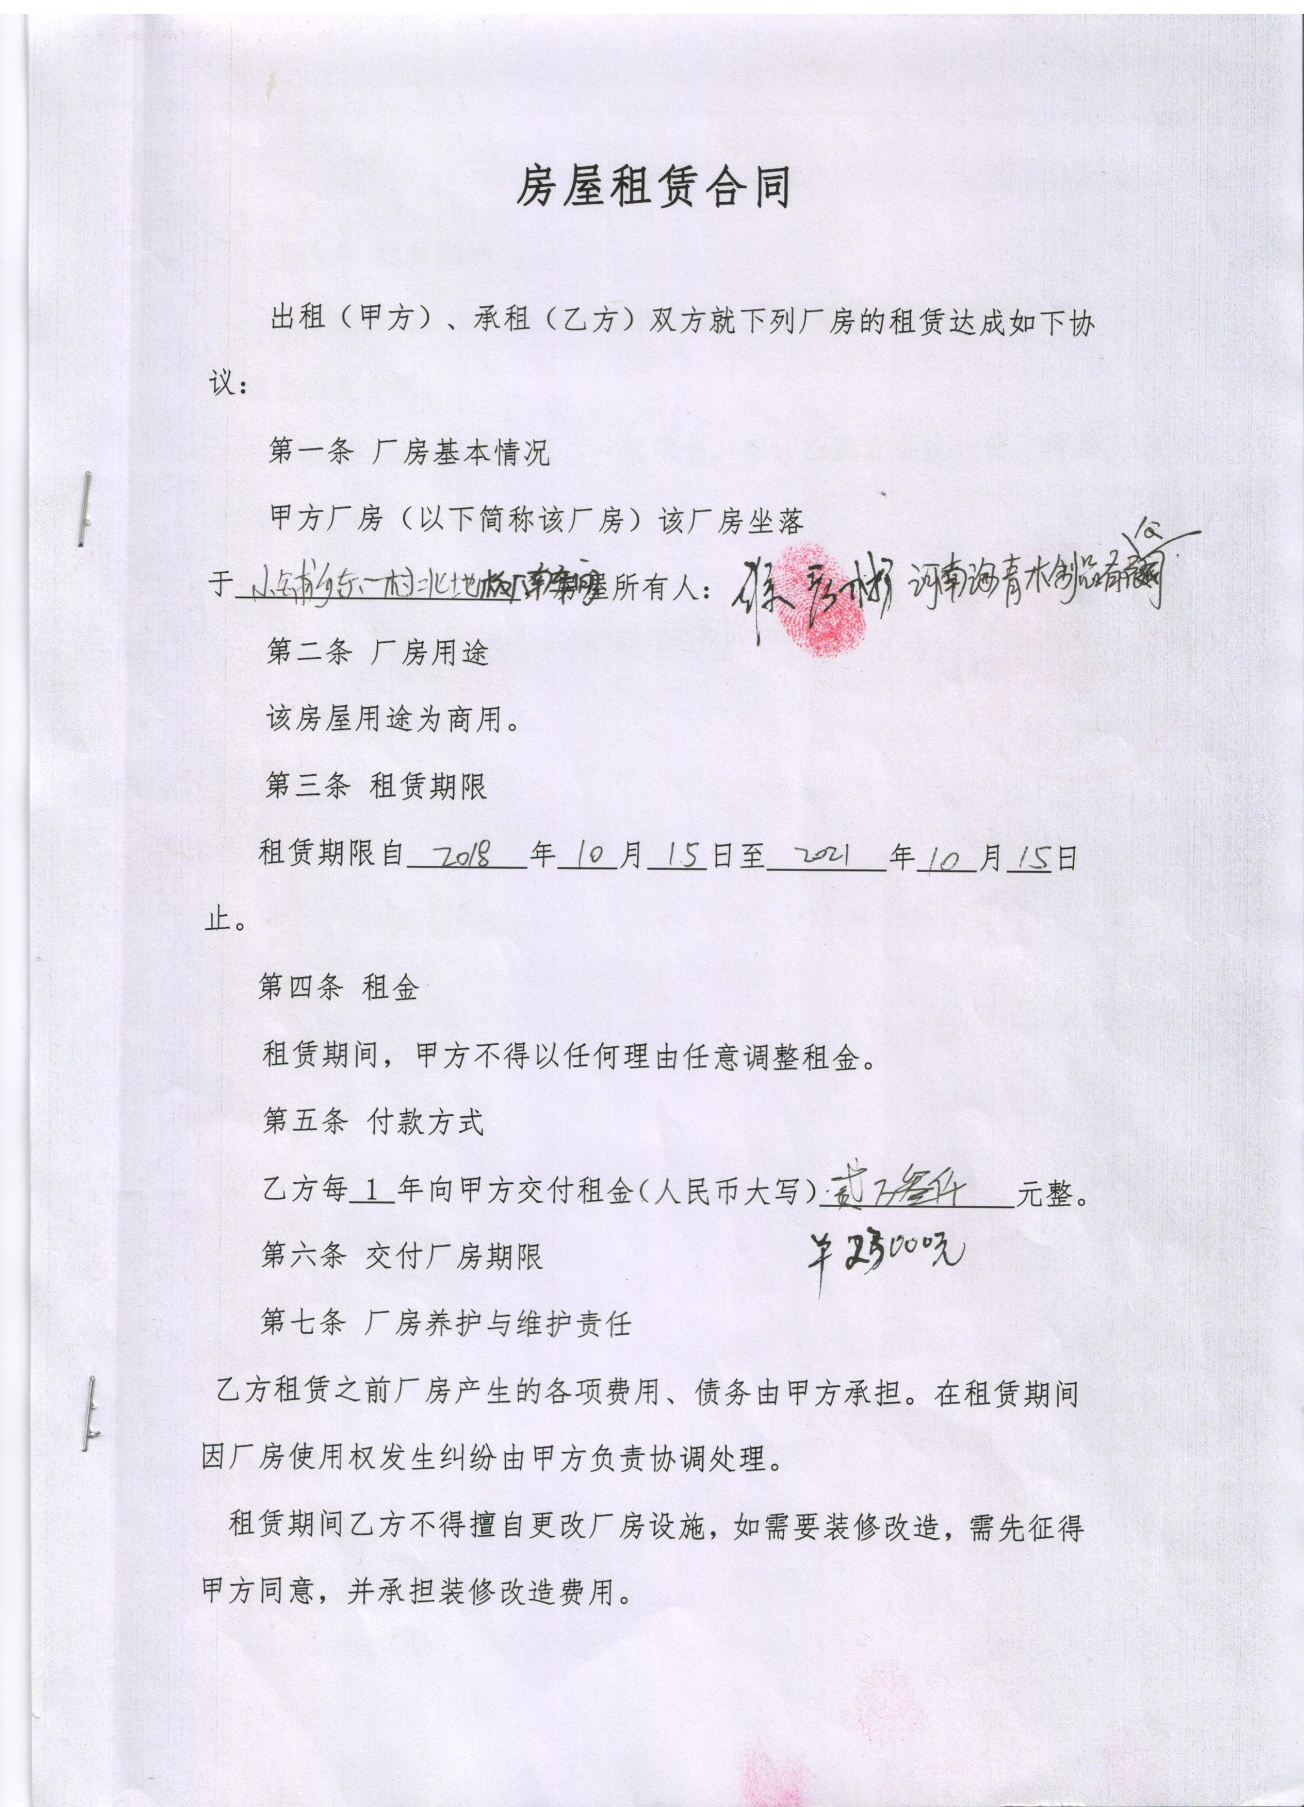 房屋租赁合同
出租（甲方）、承租（乙方）双方就下列厂房的租赁达成如下协
议：
第一条 厂房基本情况
甲方厂房（以下简称该厂房）该厂房坐落
于 小铺乡东一村北地板厂 屋所有人： 徐彦彬 河南海青木制品有限公司
第二条 厂房用途
该房屋用途为商用。
第三条 租赁期限
租赁期限自 2018 年 10 月 15 日至 2021 年 10 月 15 日
止。
第四条 租金
租赁期间，甲方不得以任何理由任意调整租金。
第五条 付款方式
乙方每 1 年向甲方交付租金（人民币大写） 贰万叁仟 元整。
第六条 交付厂房期限 ¥23000元
第七条 厂房养护与维护责任
乙方租赁之前厂房产生的各项费用、债务由甲方承担。在租赁期间
因厂房使用权发生纠纷由甲方负责协调处理。
租赁期间乙方不得擅自更改厂房设施，如需要装修改造，需先征得
甲方同意，并承担装修改造费用。